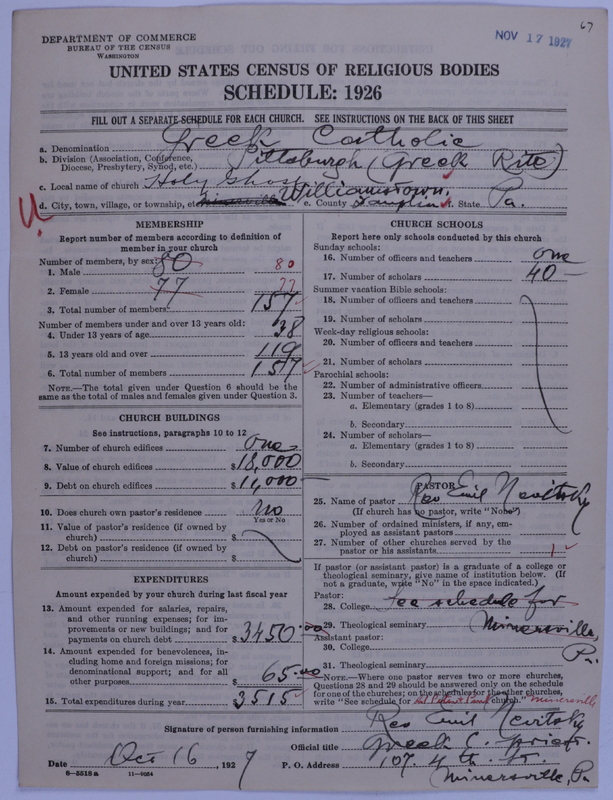 67
DEPARTMENT OF COMMERCE
BUREAU OF THE CENSUS
WASHINGTON
NOV 17 1927
UNITED STATES CENSUS OF RELIGIOUS BODIES
SCHEDULE: 1926
FILL OUT A SEPARATE SCHEDULE FOR EACH CHURCH. SEE INSTRUCTIONS ON THE BACK OF THIS SHEET
a. Denomination Greek Catholic
b. Division (Association, Conference, Diocese, Presbytery, Synod, etc.) Pittsburgh (Greek Rite)
c. Local name of church Holy Ghost
d. City, town, village, or township, etc. Williamstown, e. County Dauphin f. State Pa.
MEMBERSHIP
Report number of members according to definition of member in your church
Number of members, by sex:
1. Male 80 80
2. Female 77 77
3. Total number of members 157
Number of members under and over 13 years old:
4. Under 13 years of age 38
5. 13 years old and over 119
6. Total number of members 157
NOTE.—The total given under Question 6 should be the same as the total of males and females given under Question 3.
CHURCH BUILDINGS
See instructions, paragraphs 10 to 12
7. Number of church edifices one
8. Value of church edifices $18,000
9. Debt on church edifices $11,000
10. Does church own pastor's residence No
Yes or No
11. Value of pastor's residence (if owned by church) $
12. Debt on pastor's residence (if owned by church) $
EXPENDITURES
Amount expended by your church during last fiscal year
13. Amount expended for salaries, repairs, and other running expenses; for improvements or new buildings; and for payments on church debt $3450.00
14. Amount expended for benevolences, including home and foreign missions; for denominational support; and for all other purposes $65.00
15. Total expenditures during year $3515
CHURCH SCHOOLS
Report here only schools conducted by this church
Sunday schools:
16. Number of officers and teachers one
17. Number of scholars 40
Summer vacation Bible schools:
18. Number of officers and teachers
19. Number of scholars
Week-day religious schools:
20. Number of officers and teachers
21. Number of scholars
Parochial schools:
22. Number of administrative officers
23. Number of teachers—
a. Elementary (grades 1 to 8)
b. Secondary
24. Number of scholars—
a. Elementary (grades 1 to 8)
b. Secondary
PASTOR
25. Name of pastor Rev Emil Nevitsky
(If church has no pastor, write "None")
26. Number of ordained ministers, if any, employed as assistant pastors
27. Number of other churches served by the pastor or his assistants 1
If pastor (or assistant pastor) is a graduate of a college or theological seminary, give name of institution below. (If not a graduate, write "No" in the space indicated.)
Pastor:
28. College See schedule for
29. Theological seminary Minersville,
Assistant pastor:
30. College Pa.
31. Theological seminary
NOTE.—Where one pastor serves two or more churches, Questions 28 and 29 should be answered only on the schedule for one of the churches; on the schedules for the other churches, write "See schedule for church." Minersville
Signature of person furnishing information Rev Emil Nevitsky
Official title Greek C. Priest
Date Oct 16, 1927 P. O. Address 107. 4th St.
Minersville, Pa
8-5518a 11-9264